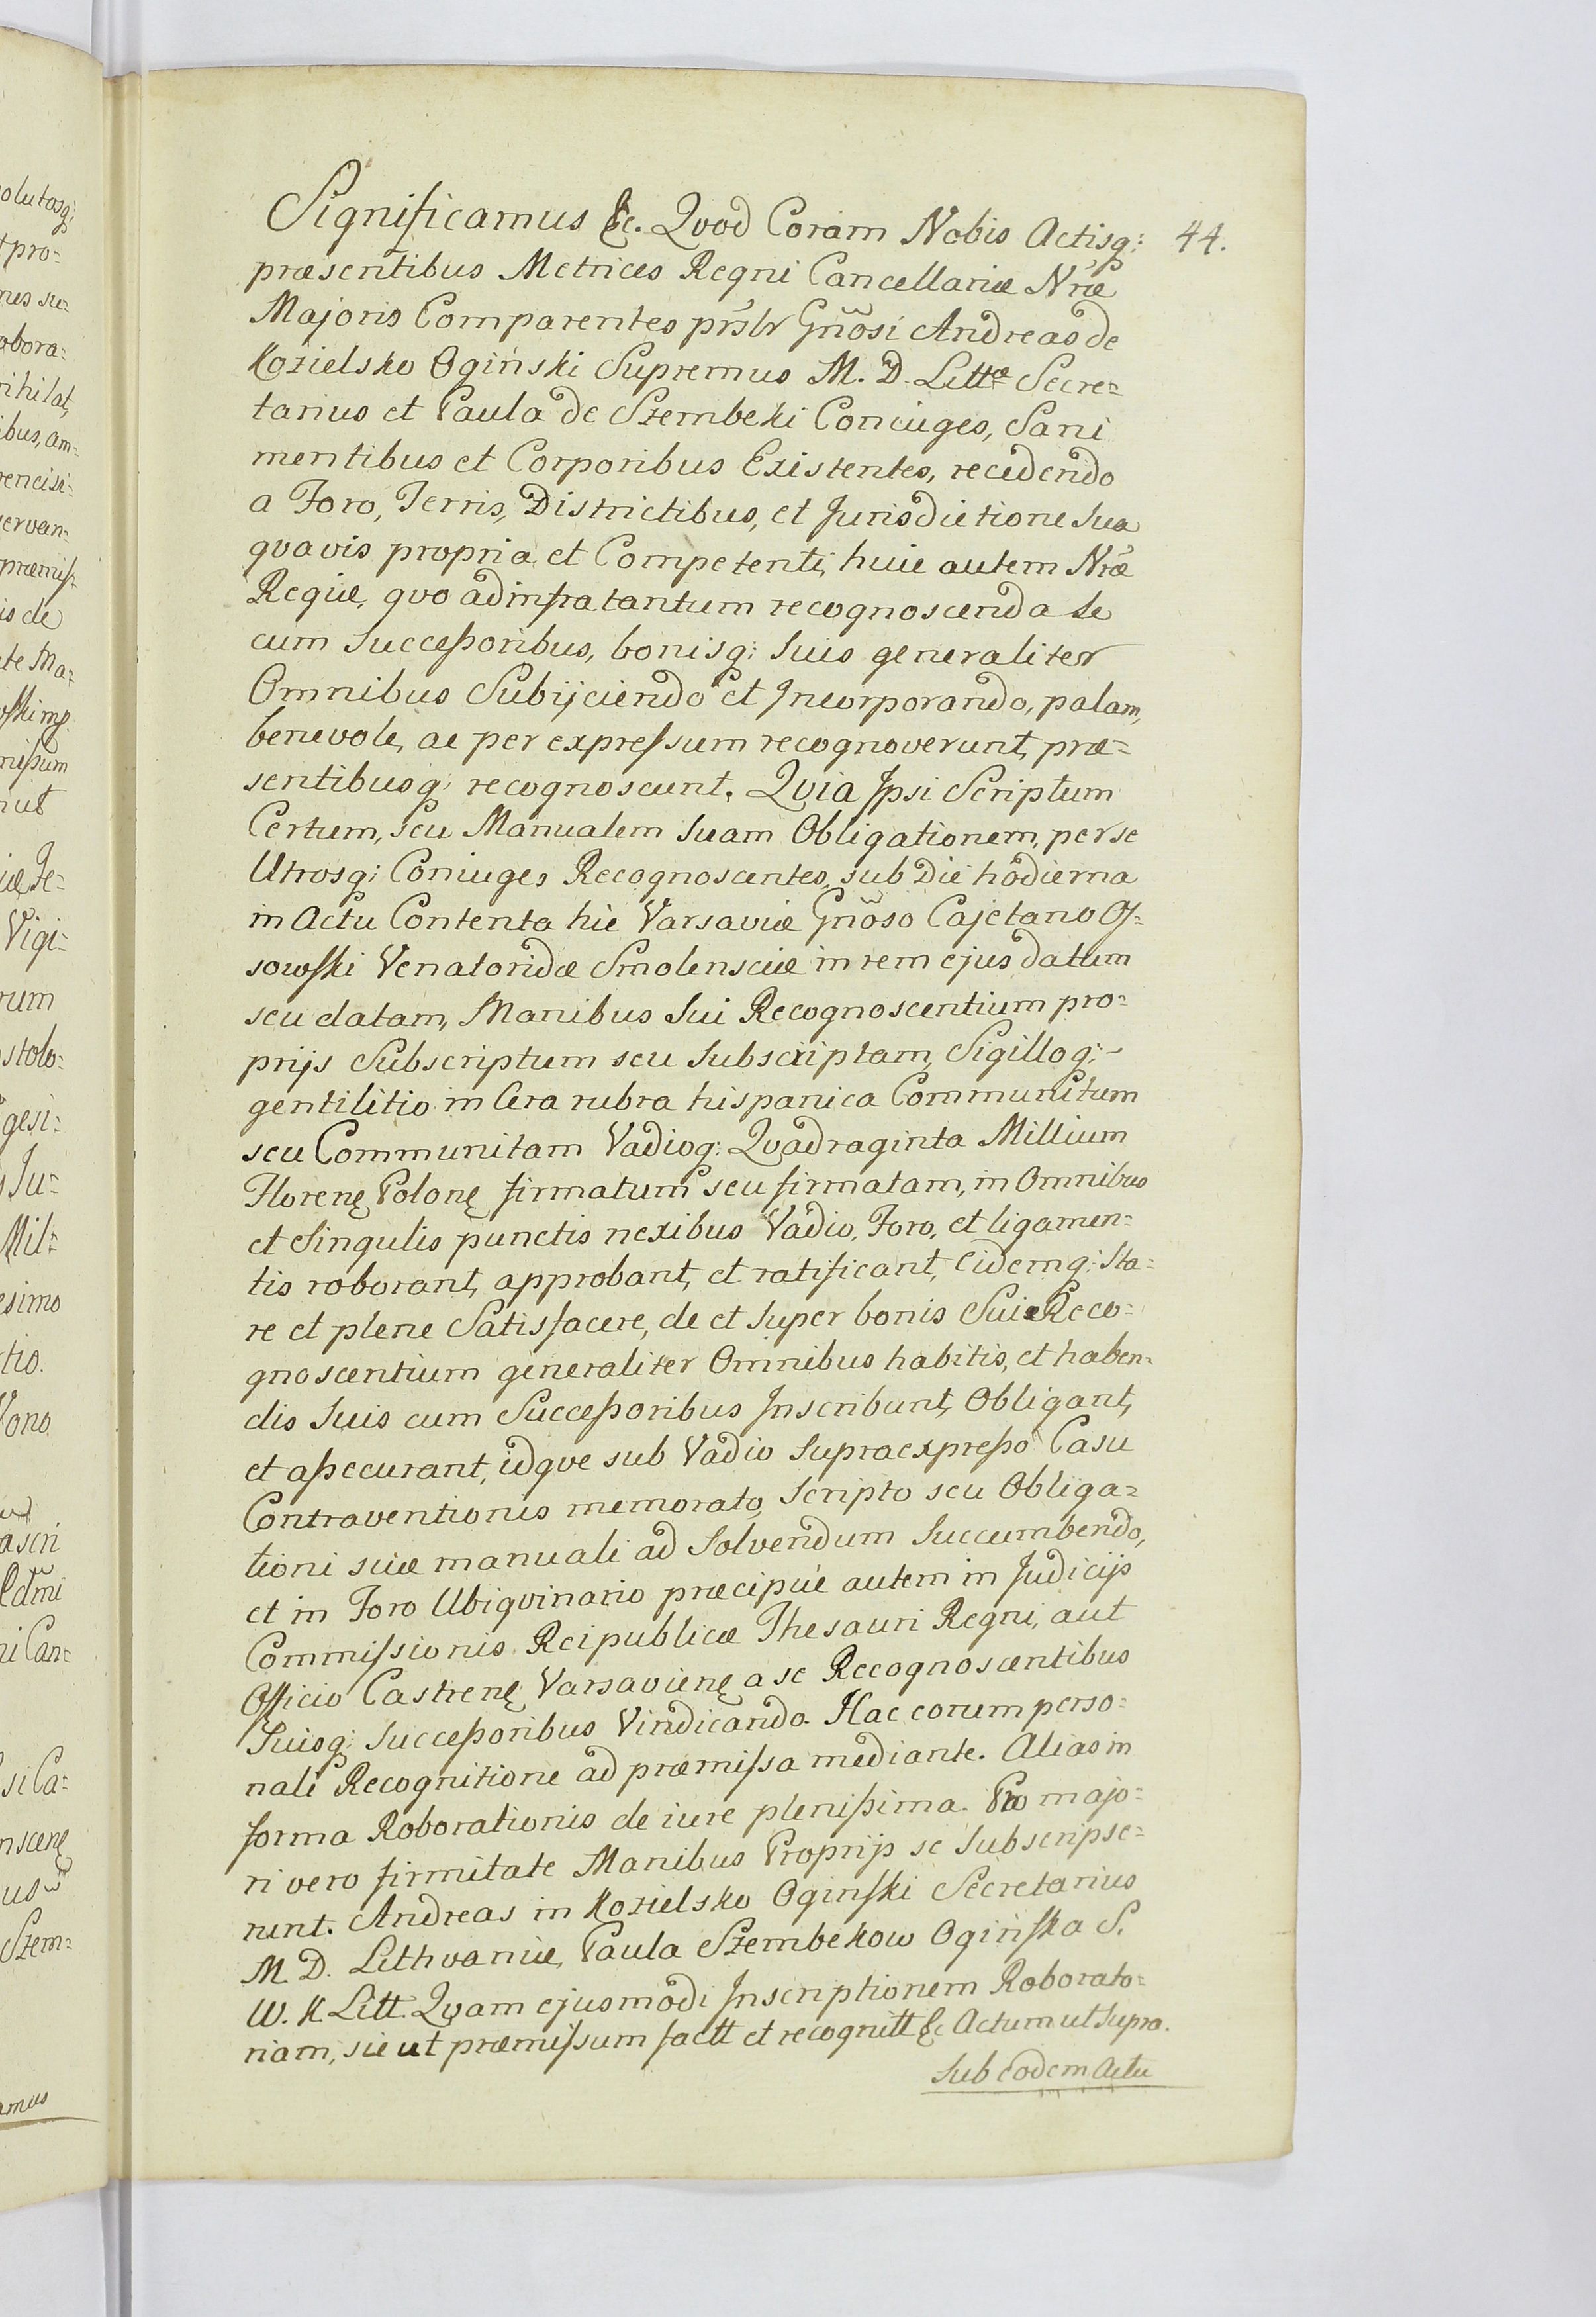 44.
Significamus &c. Qvod Coram Nobis Actisq:
præsentibus Metrices Regni Cancellariæ Nræ
Majoris Comparentes prsltr Gnosi Andreas de
Kozielsko Ogiński Supremus M. D. Littæ Secre=
tarius et Paula de Szembeki Coniuges, Sani
mentibus et Corporibus Existentes, recedendo
a Foro, Terris, Districtibus, et Jurisdictione sua
qvavis propria, et Competenti, huic autem Nræ
Regiæ, qvo ad infra tantum recognoscenda se
cum Successoribus, bonisq: suis generaliter
Omnibus Subijciendo et Incorporando, palam,
benevole, ac per expressum recognoverunt, præ=
sentibusq: recognoscunt. Qvia Ipsi Scriptum
Certum, seu Manualem suam Obligationem, per se
Utrosq: Coniuges Recognoscentes, sub Die hodierna
in Actu Contenta hic Varsaviæ Gnoso Cajetano Os=
sowski Venatoridæ Smolensciæ in rem ejus datum
seu datam, Manibus sui Recognoscentium pro=
prijs Subscriptum seu subscriptam, Sigilloq:
gentilitio in Cera rubra hispanica Communitum
seu Communitam Vadioq: Qvadraginta Millium
Florenę Polonę firmatum seu firmatam, in Omnibus
et Singulis punctis nexibus Vadio, Foro, et ligamen=
tis roborant, approbant, et ratificant, Eidemq: Sta=
re et plene Satisfacere, de et super bonis Sui Reco=
gnoscentium generaliter Omnibus habitis, et haben=
dis suis cum Successoribus Inscribunt, Obligant,
et assecurant, idqve sub Vadio supraexpresso Casu
Contraventionis memorato, Scripto seu Obliga=
tioni suæ manuali ad Solvendum succumbendo,
et in Foro Ubiqvinario præcipue autem in Judicijs
Commissionis Reipublicæ Thesauri Regni, aut
Officio Castrenę Varsavienę a se Recognoscentibus
Suisq: Successoribus Vindicando. Hac eorum perso=
nali Recognitione ad præmissa mediante. Alias in
forma Roborationis de iure plenissima. Pro majo=
ri vero firmitate Manibus Proprijs se subscripse=
runt. Andreas in Kozielsko Oginski Secretarius
M. D. Lithvaniæ, Paula Szembekow Oginska S.
W. K. Litt. Qvam ejusmodi Inscriptionem Roborato=
riam, sic ut præmissum factt et recognitt &c Actum ut supra.
Sub eodem Actu